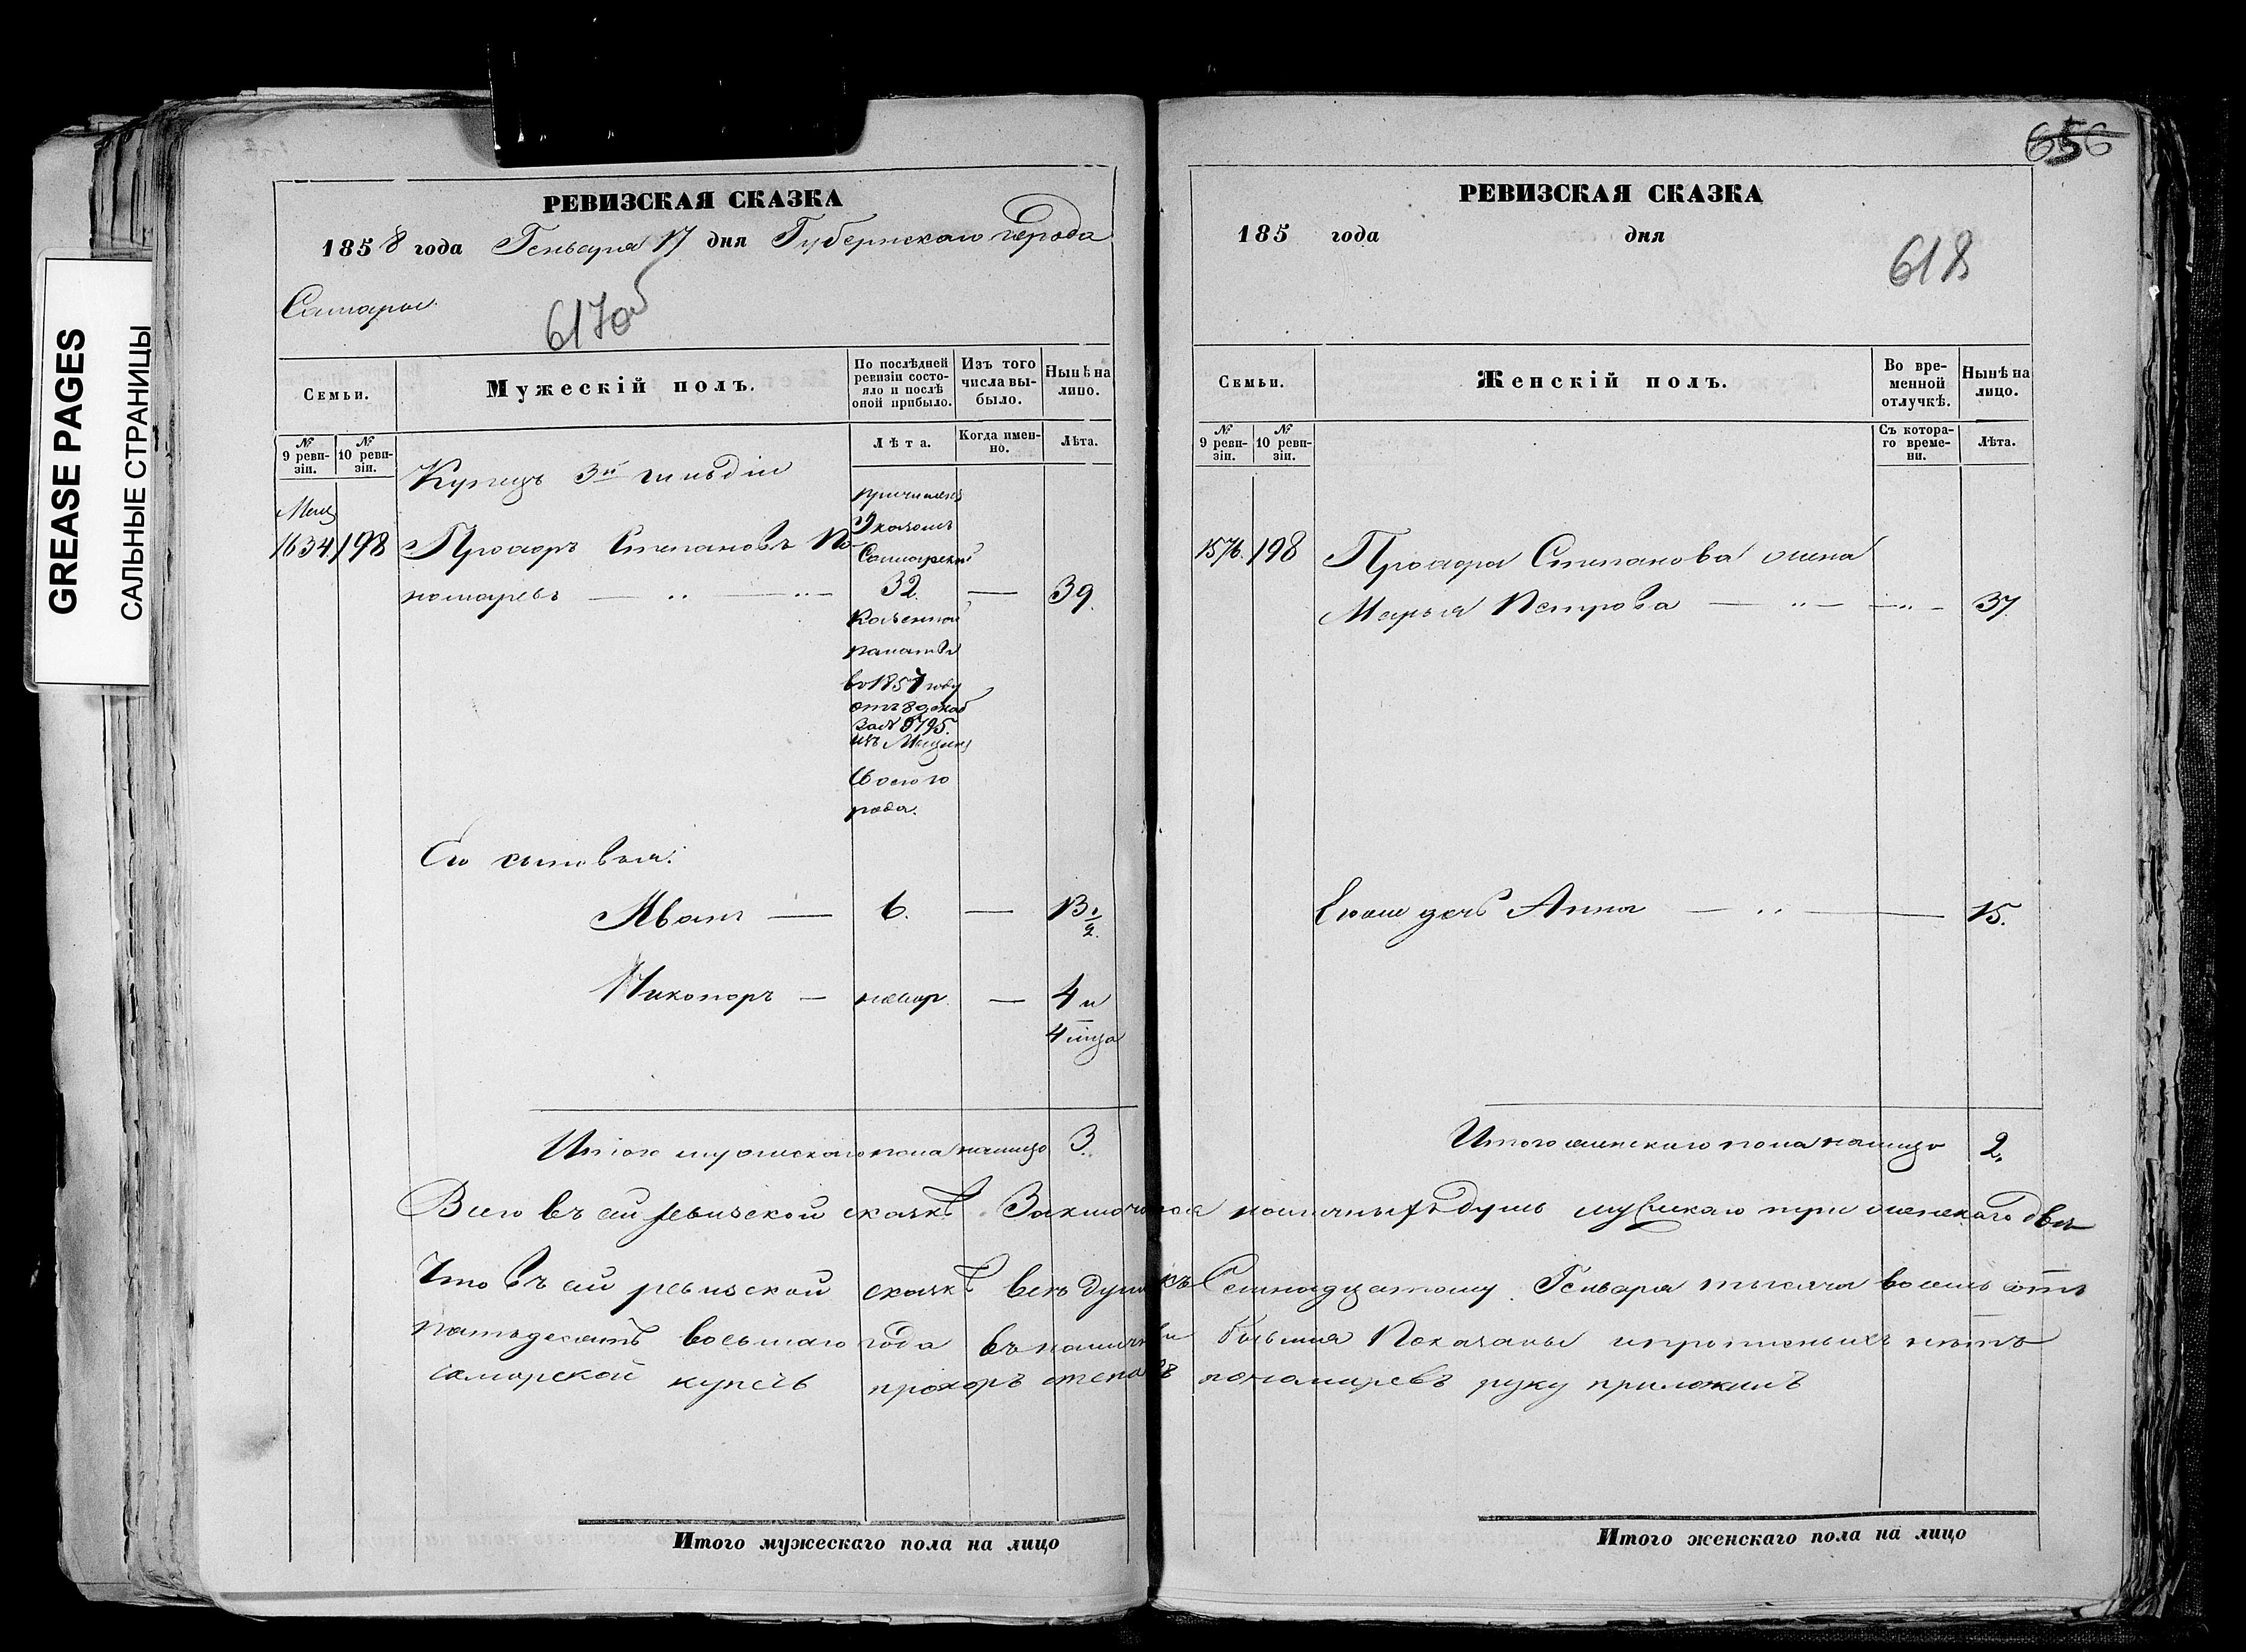 GREASE PAGES
САЛЬНЫЕ СТРАНИЦЫ
РЕВИЗСКАЯ СКАЗКА
1858 года Генваря 17 дня Губернскаго города
Самары
617об
Семьи.
Мужескій полъ.
По послѣдней ревизіи состояло и послѣ оной прибыло.
Изъ того числа выбыло.
Нынѣ на лицо.
№ 9 ревизіи.
№ 10 ревизіи.
Лѣта.
Когда именно.
Лѣта.
Купецъ 3й гильдіи
Мещ
1634. 198 Прохоръ Степановъ По
номаревъ — „ — „ — 32 — 39.
причисленъ
Указомъ
Самарской
Казенной
палаты
въ 1857 году
отъ 8 декаб
за № 8795.
изъ Мещанъ
сего го
рода.
Его сыновья:
Иванъ — 6. — 13 1/2.
Никоноръ — новор. — 4 и
4 мѣца
Итого мужескаго пола налицо 3.
656
РЕВИЗСКАЯ СКАЗКА
185 года дня
618
Семьи.
Женскій полъ.
Во временной отлучкѣ.
Нынѣ на лицо.
№ 9 ревизіи.
№ 10 ревизіи.
Съ котораго времени.
Лѣта.
1576. 198 Прохора Степанова жена
Марья Петрова — „ — — „ — 37
Ево же дочь Анна — „ — 15.
Итого женскаго пола налицо 2.
Всего въ сей ревизской сказкѣ Заключается наличныхъ душъ мужскаго три женскаго двѣ
Что въ сей ревизской сказкѣ всѣ души къ Семнадцатому Генваря тысяча восемь сотъ
пятьдесятъ восьмаго года въ наличности бывшія Показаны и прописныхъ нѣтъ
самарской купецъ прохоръ степановъ пономаревъ руку приложилъ
Итого мужескаго пола на лицо
Итого женскаго пола на лицо